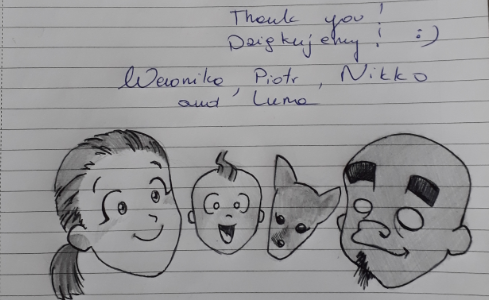 Thank you!
Dziękujemy! :)
Weronika, Piotr, Nikko
and Luma